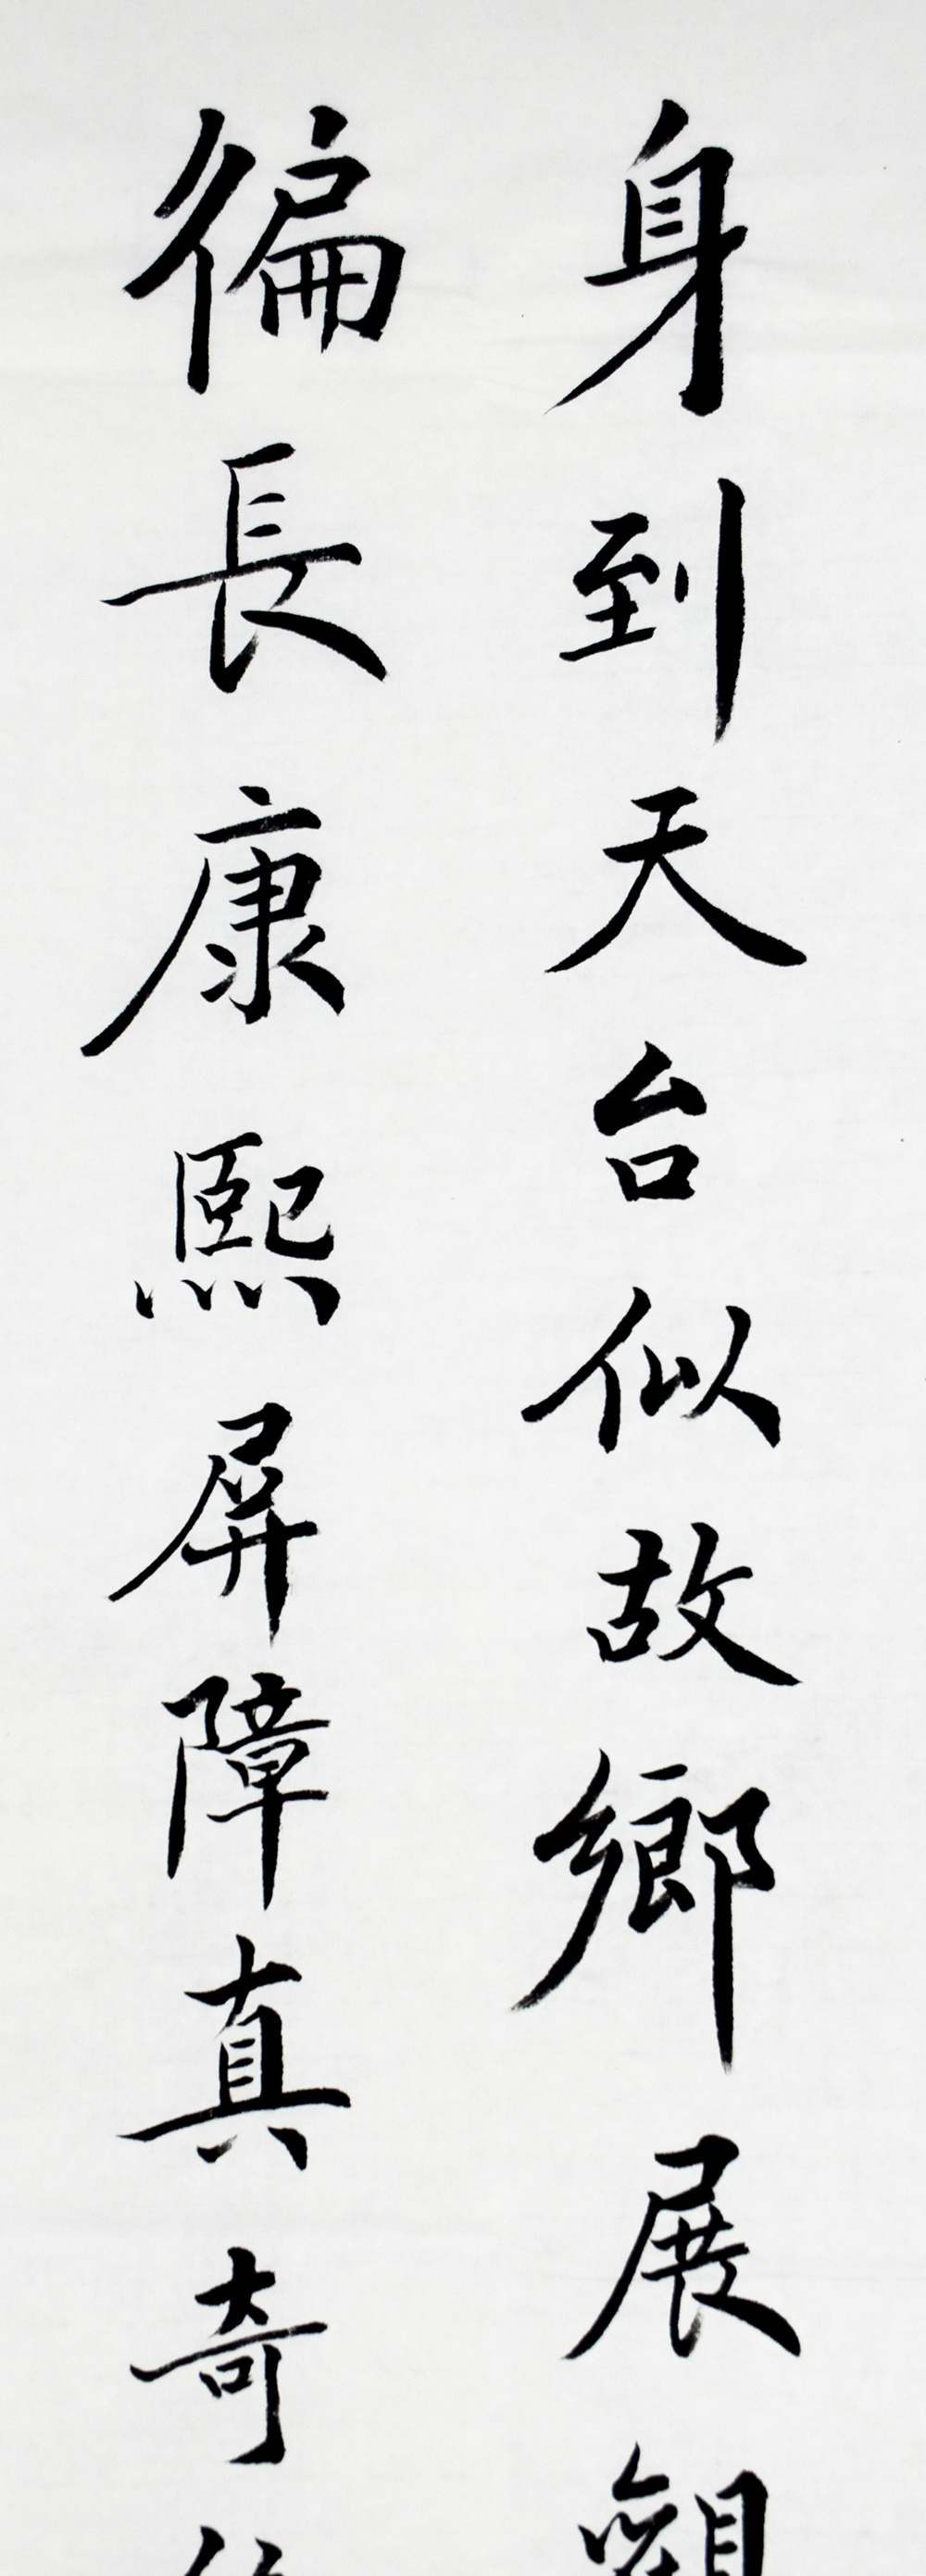 身到天台似故鄉展
徧長康熙屏障真奇